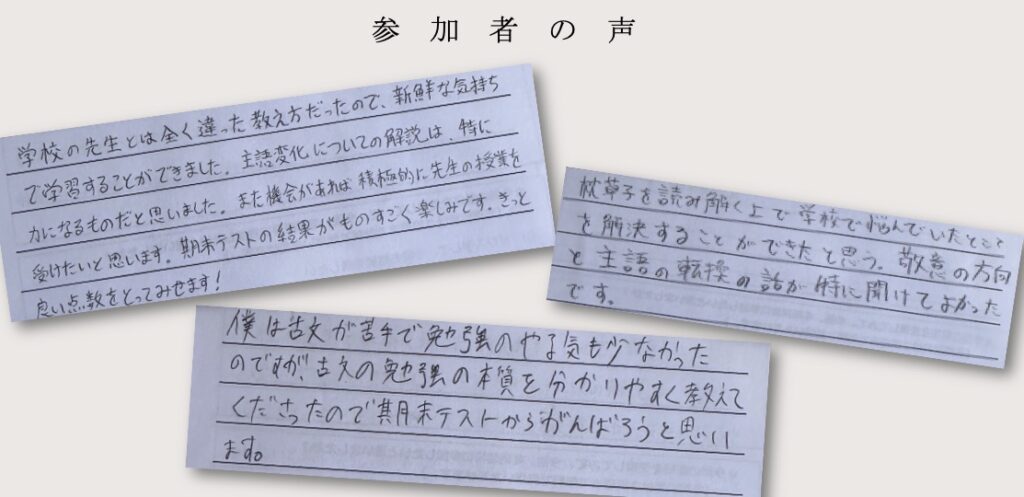 参加者の声
学校の先生とは全く違った教え方だったので、新鮮な気持ち
で学習することができました。主語変化についての解説は、特に
力になるものだと思いました。また機会があれば積極的に先生の授業を
受けたいと思います。期末テストの結果がものすごく楽しみです。きっと
良い点数をとってみせます!
枕草子を読み解く上で学校で悩んでいたところ
を解決することができたと思う。敬意の方向
と主語の転換の話が特に聞けてよかった
です。
僕は古文が苦手で勉強のやる気も少なかった
のですが、古文の勉強の本質を分かりやすく教えて
くださったので期末テストからがんばろうと思い
ます。